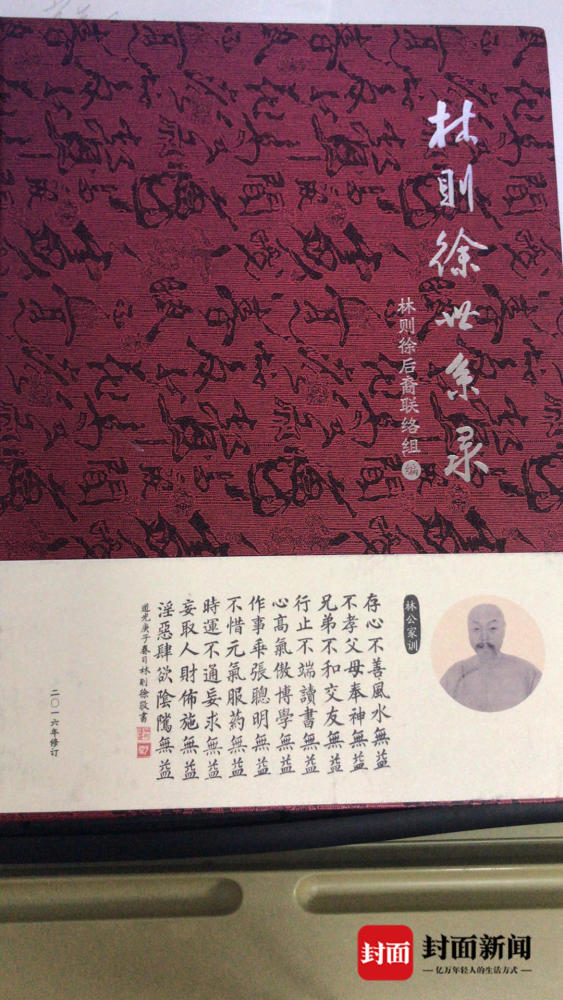 林則徐世系录
林则徐后裔联络组 编
林公家训
存心不善風水無益
不孝父母奉神無益
兄弟不和交友無益
行止不端讀書無益
心高氣傲博學無益
作事乖張聰明無益
不惜元氣服药無益
時運不通妄求無益
妄取人財佈施無益
淫惡肆欲陰騭無益
道光庚子春日林則徐敬書
二〇一六年修订
封面
封面新闻
亿万年轻人的生活方式